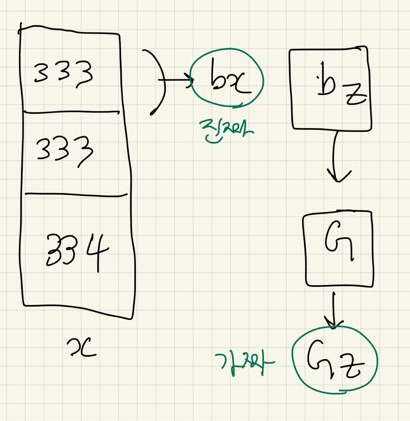 333
333
334
x
bx
진짜
bz
G
Gz
가짜